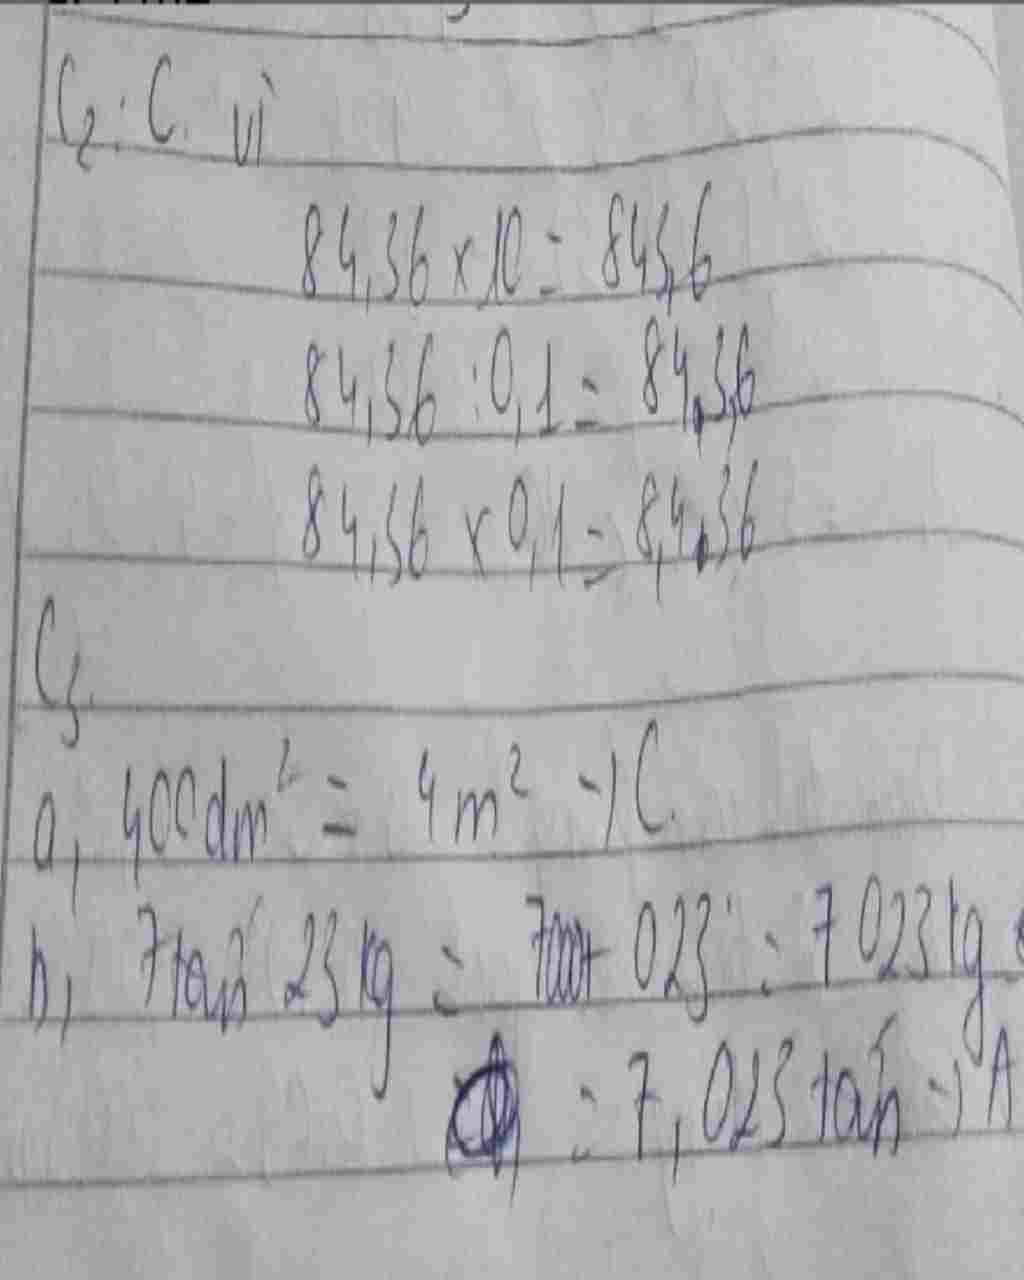 C₂: C. vì
84,36 x 10 = 843,6
84,36 : 0,1 = 84,3,6
84,36 x 0,1 = 8,4,36
C₃.
a, 400dm² = 4m² → C.
b, 7 tấn 23 kg = 7000 + 023 = 7 023 kg
= 7,023 tấn → A